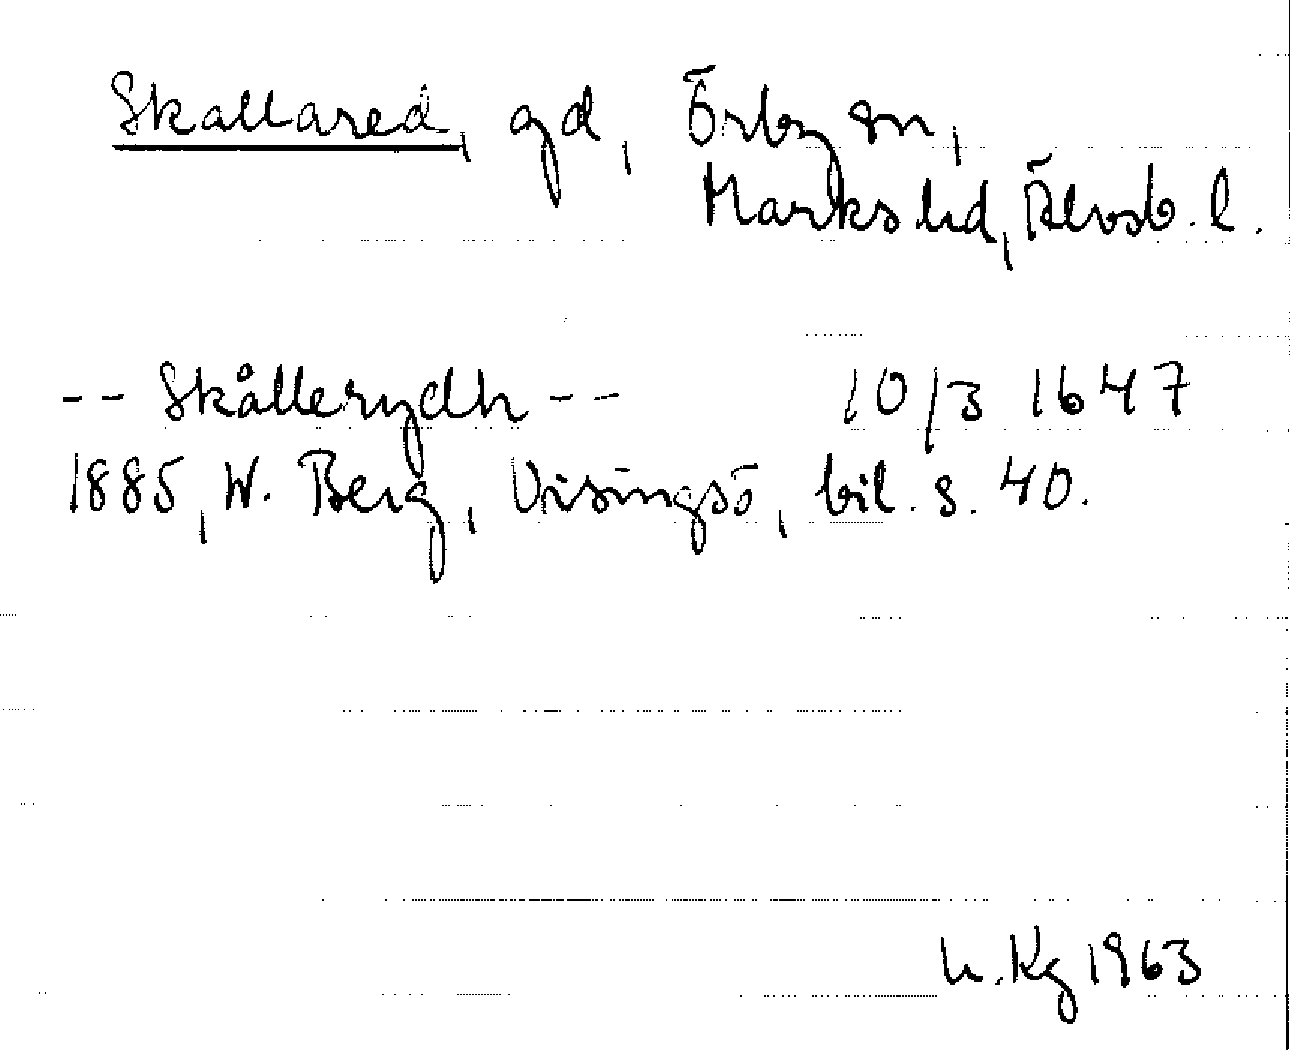 Skallared, gd, Örby sn,
Marks hd, Älvsb. l.
-- Skållerydh -- 10/3 1647
1885, W. Berg, Visingsö, bil. s. 40.
h. Kg 1963